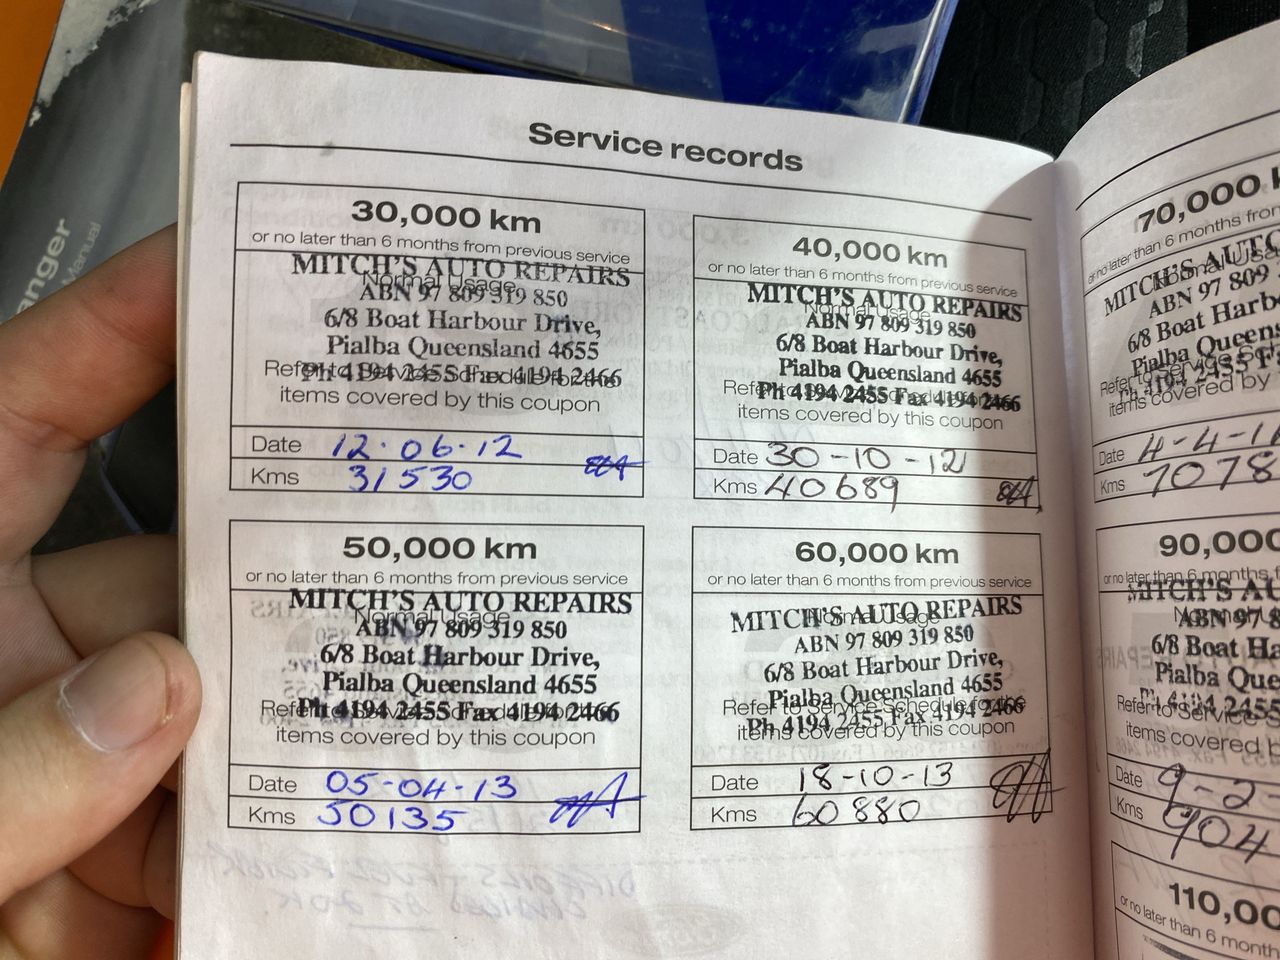 anger
Manual
Service records
30,000 km
or no later than 6 months from previous service
MITCH'S AUTO REPAIRS
Normal Usage
ABN 97 809 319 850
6/8 Boat Harbour Drive,
Pialba Queensland 4655
Ph 4194 2455 Fax 4194 2466
items covered by this coupon
Date 12.06.12
Kms 31530
40,000 km
or no later than 6 months from previous service
MITCH'S AUTO REPAIRS
Normal Usage
ABN 97 809 319 850
6/8 Boat Harbour Drive,
Pialba Queensland 4655
Ph 4194 2455 Fax 4194 2466
items covered by this coupon
Date 30-10-12
Kms 40689
50,000 km
or no later than 6 months from previous service
MITCH'S AUTO REPAIRS
Normal Usage
ABN 97 809 319 850
6/8 Boat Harbour Drive,
Pialba Queensland 4655
Ph 4194 2455 Fax 4194 2466
items covered by this coupon
Date 05-04-13
Kms 50135
60,000 km
or no later than 6 months from previous service
MITCH'S AUTO REPAIRS
Normal Usage
ABN 97 809 319 850
6/8 Boat Harbour Drive,
Pialba Queensland 4655
Refer to Service Schedule for the
Ph 4194 2455 Fax 4194 2466
items covered by this coupon
Date 18-10-13
Kms 60880
70,000
or no later than 6 months from
MITCH'S AUTO
Normal Usage
ABN 97 809
6/8 Boat Harbour
Pialba Queensland
Refer to Service
Ph 4194 2455 F
items covered by
Date 4-4-1
Kms 7078
90,000
or no later than 6 months f
MITCH'S AU
Normal
ABN 97 8
6/8 Boat Ha
Pialba Que
Ph 4194 2455
Refer to Service S
items covered b
Date 9-2-
Kms 904
110,00
or no later than 6 month